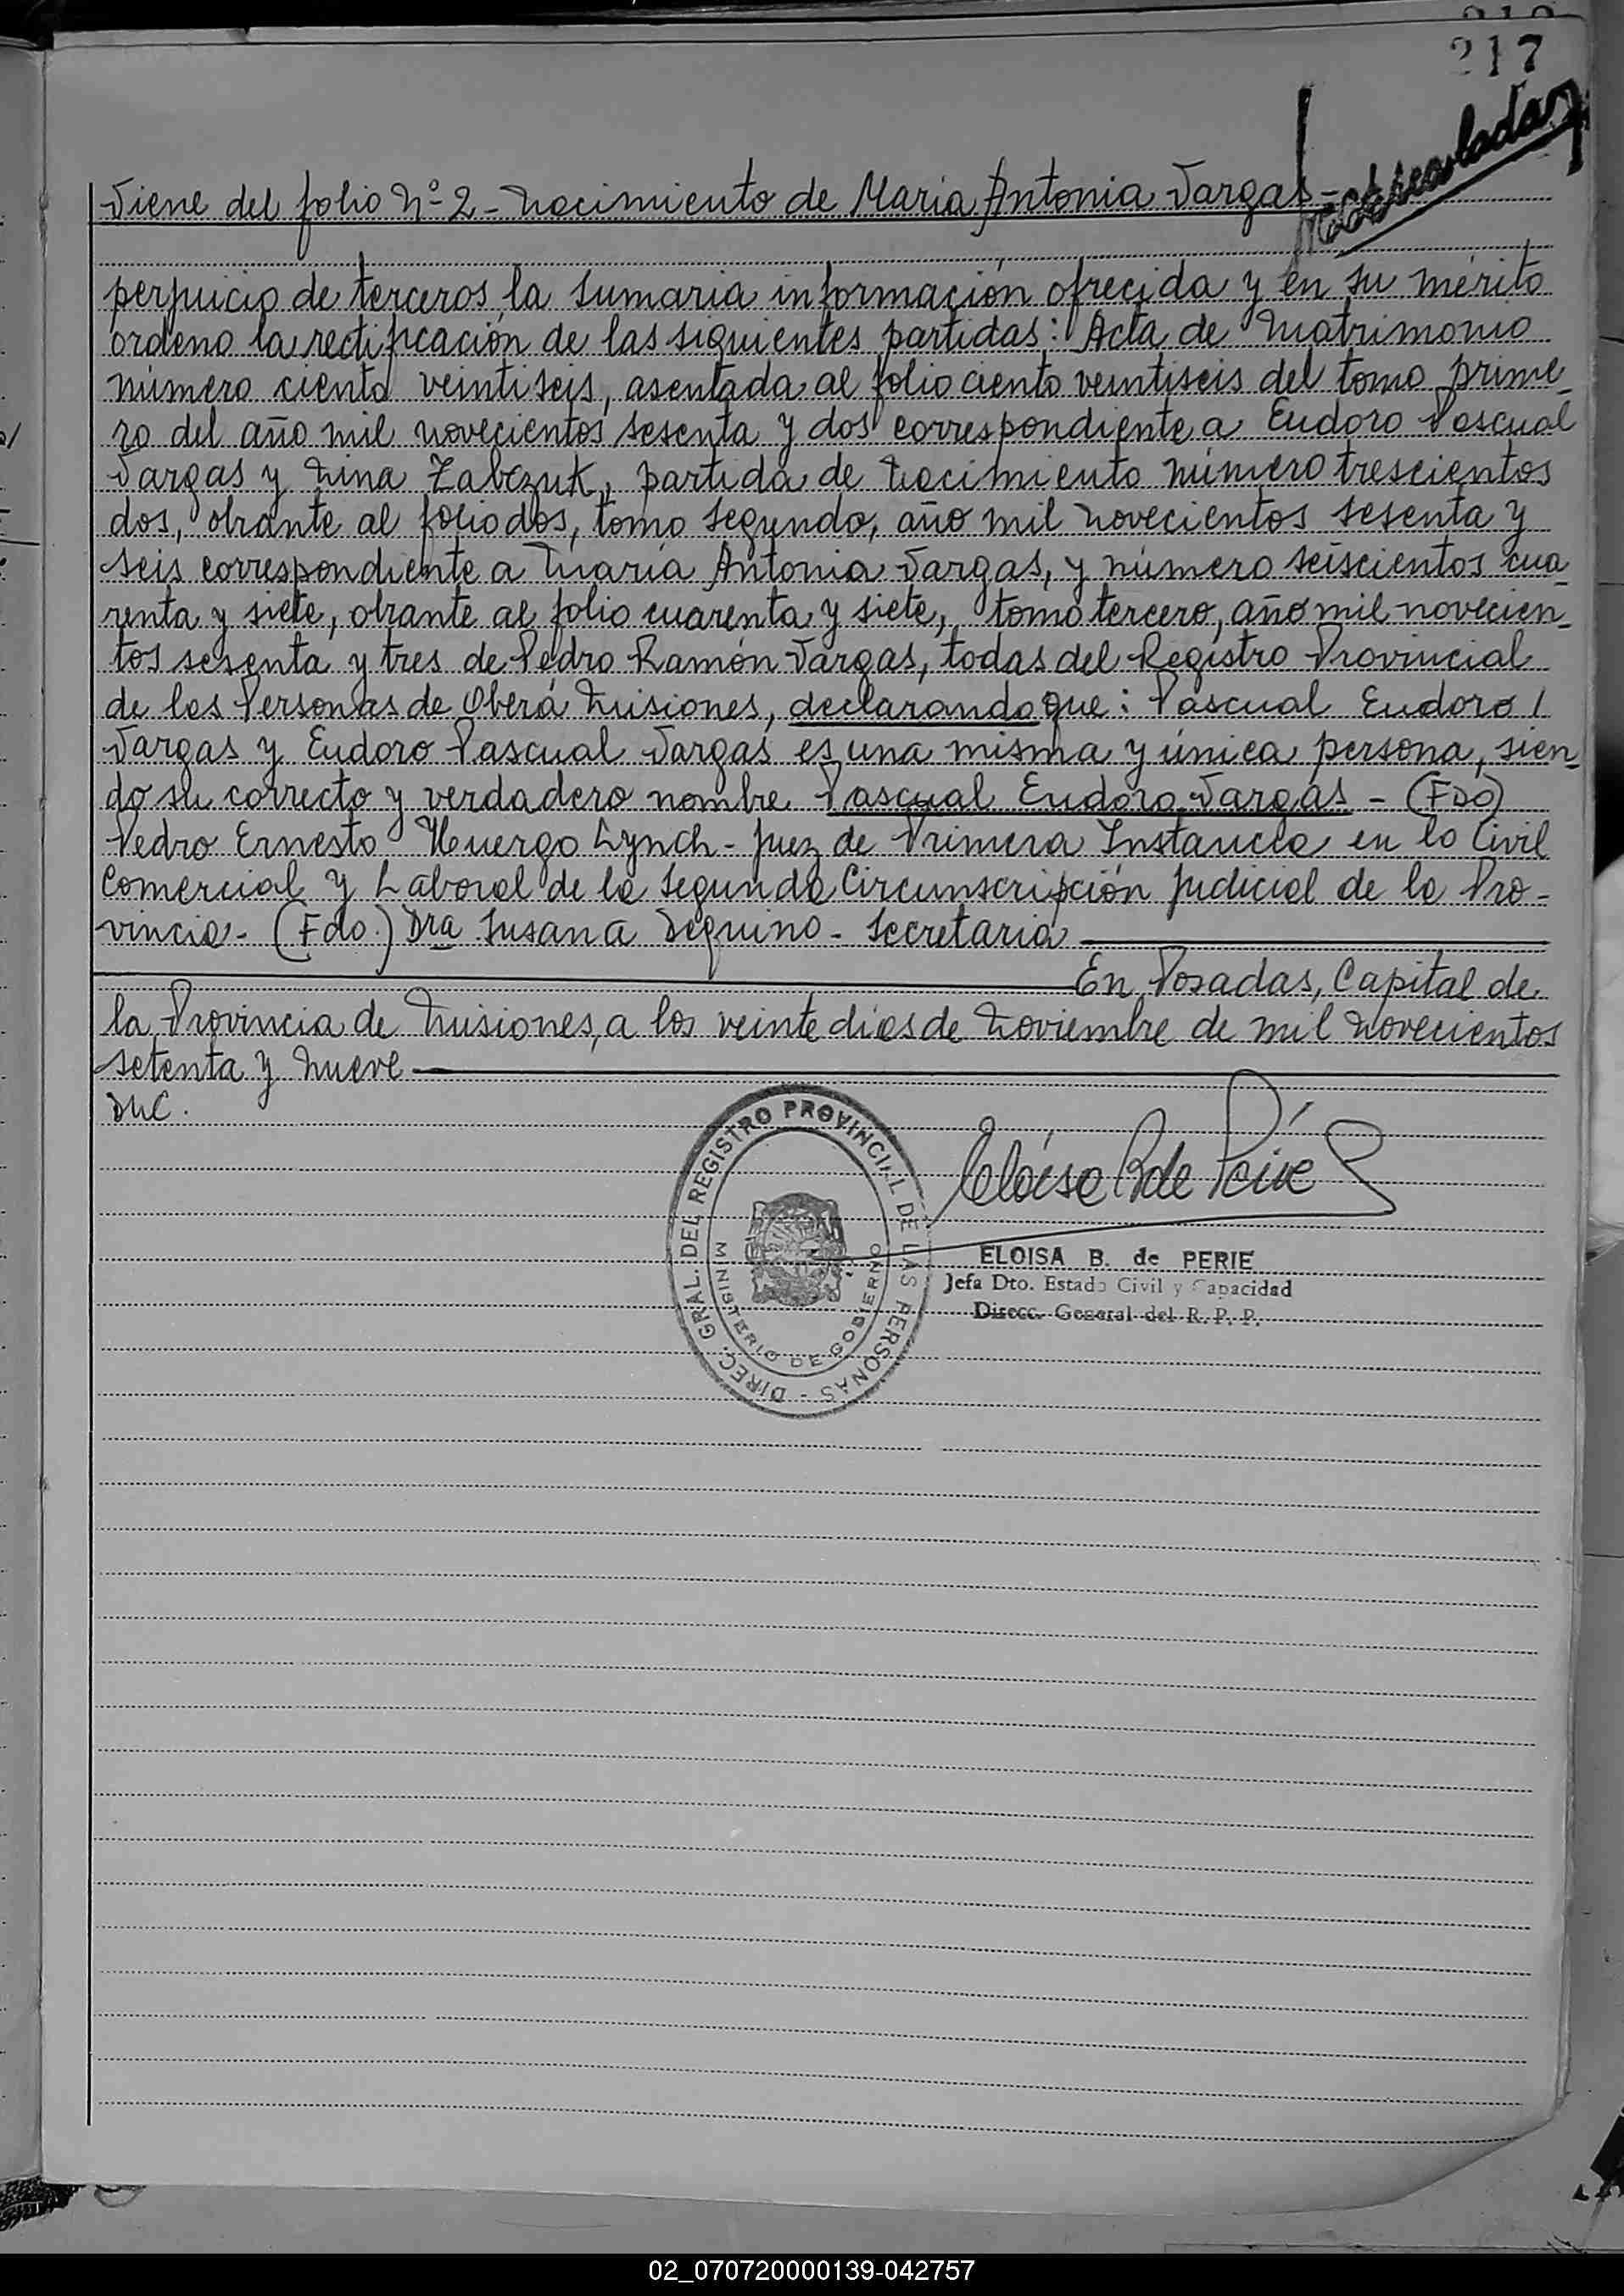 217
Viene del folio Nº 2 - Nacimiento de Maria Antonia Vargas -
perjuicio de terceros, la sumaria información ofrecida y en su mérito
ordeno la rectificación de las siguientes partidas: Acta de Matrimonio
número ciento veintiseis, asentada al folio ciento veintiseis del tomo prime-
ro del año mil novecientos sesenta y dos correspondiente a Eudoro Pascual
Vargas y Lina Zabczuk, partida de Nacimiento número trescientos
dos, obrante al folio dos, tomo segundo, año mil novecientos sesenta y
seis correspondiente a María Antonia Vargas, y número seiscientos cua-
renta y siete, obrante al folio cuarenta y siete, tomo tercero, año mil novecien-
tos sesenta y tres de Pedro Ramón Vargas, todas del Registro Provincial
de las Personas de Oberá Misiones, declarando que: Pascual Eudoro /
Vargas y Eudoro Pascual Vargas es una misma y única persona, sien-
do su correcto y verdadero nombre Pascual Eudoro Vargas - (FDO)
Pedro Ernesto Huergo Lynch - Juez de Primera Instancia en lo Civil
Comercial y Laboral de la Segunda Circunscripción Judicial de la Pro-
vincia - (Fdo.) Dra Susana Deguino - Secretaria
En Posadas, Capital de
la Provincia de Misiones, a los veinte dias de Noviembre de mil novecientos
setenta y nueve
DMC.
DIREC. GRAL. DEL REGISTRO PROVINCIAL DE LAS PERSONAS -
MINISTERIO DE GOBIERNO
Eloisa B de Perie
ELOISA B. de PERIE
Jefa Dto. Estado Civil y Capacidad
Direcc. General del R. P. P.
02_070720000139-042757